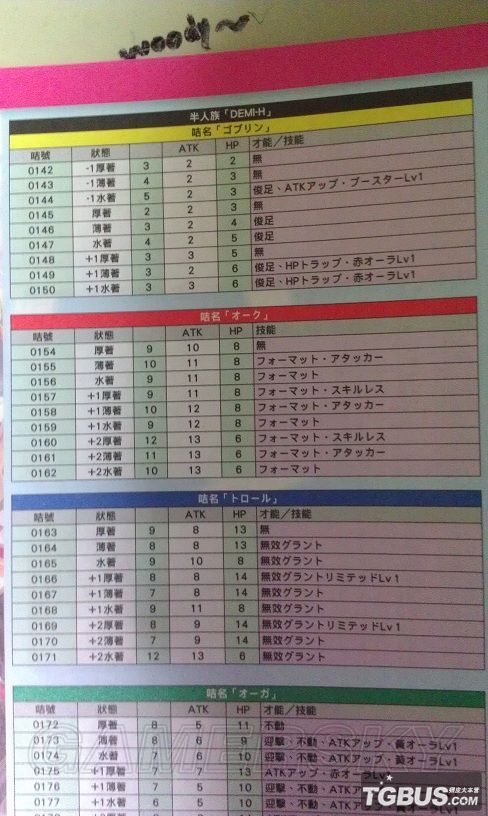 woody~
半人族「DEMI-H」
咭名「ゴブリン」
咭號 狀態 ATK HP 才能／技能
0142 -1厚著 3 2 2 無
0143 -1薄著 4 2 3 無
0144 -1水著 5 2 3 俊足、ATKアップ・ブースターLv1
0145 厚著 2 2 3 無
0146 薄著 3 2 4 俊足
0147 水著 4 2 5 俊足
0148 +1厚著 3 3 5 無
0149 +1薄著 3 2 6 俊足、HPトラップ・赤オーラLv1
0150 +1水著 3 3 6 俊足、HPトラップ・赤オーラLv1
咭名「オーク」
咭號 狀態 ATK HP 技能
0154 厚著 9 10 8 無
0155 薄著 10 11 8 フォーマット・アタッカー
0156 水著 9 11 8 フォーマット
0157 +1厚著 9 11 8 フォーマット・スキルレス
0158 +1薄著 10 12 8 フォーマット・アタッカー
0159 +1水著 9 12 8 フォーマット
0160 +2厚著 12 13 6 フォーマット・スキルレス
0161 +2薄著 11 13 6 フォーマット・アタッカー
0162 +2水著 10 13 6 フォーマット
咭名「トロール」
咭號 狀態 ATK HP 才能／技能
0163 厚著 9 8 13 無
0164 薄著 8 8 13 無效グラント
0165 水著 9 10 8 無效グラント
0166 +1厚著 8 8 14 無效グラントリミテッドLv1
0167 +1薄著 7 8 14 無效グラント
0168 +1水著 9 11 8 無效グラント
0169 +2厚著 8 9 14 無效グラントリミテッドLv1
0170 +2薄著 7 9 14 無效グラント
0171 +2水著 12 13 6 無效グラント
咭名「オーガ」
咭號 狀態 ATK HP 才能／技能
0172 厚著 8 5 11 不動
0173 薄著 8 6 9 迎擊、不動、ATKアップ・黃オーラLv1
0174 水著 7 6 10 迎擊、不動、ATKアップ・黃オーラLv1
0175 +1厚著 7 7 13 ATKアップ・赤オーラLv
0176 +1薄著 7 5 10 迎擊、不動・ATK
0177 +1水著 6 5 10 迎擊、不動・ATK
TGBUS.com